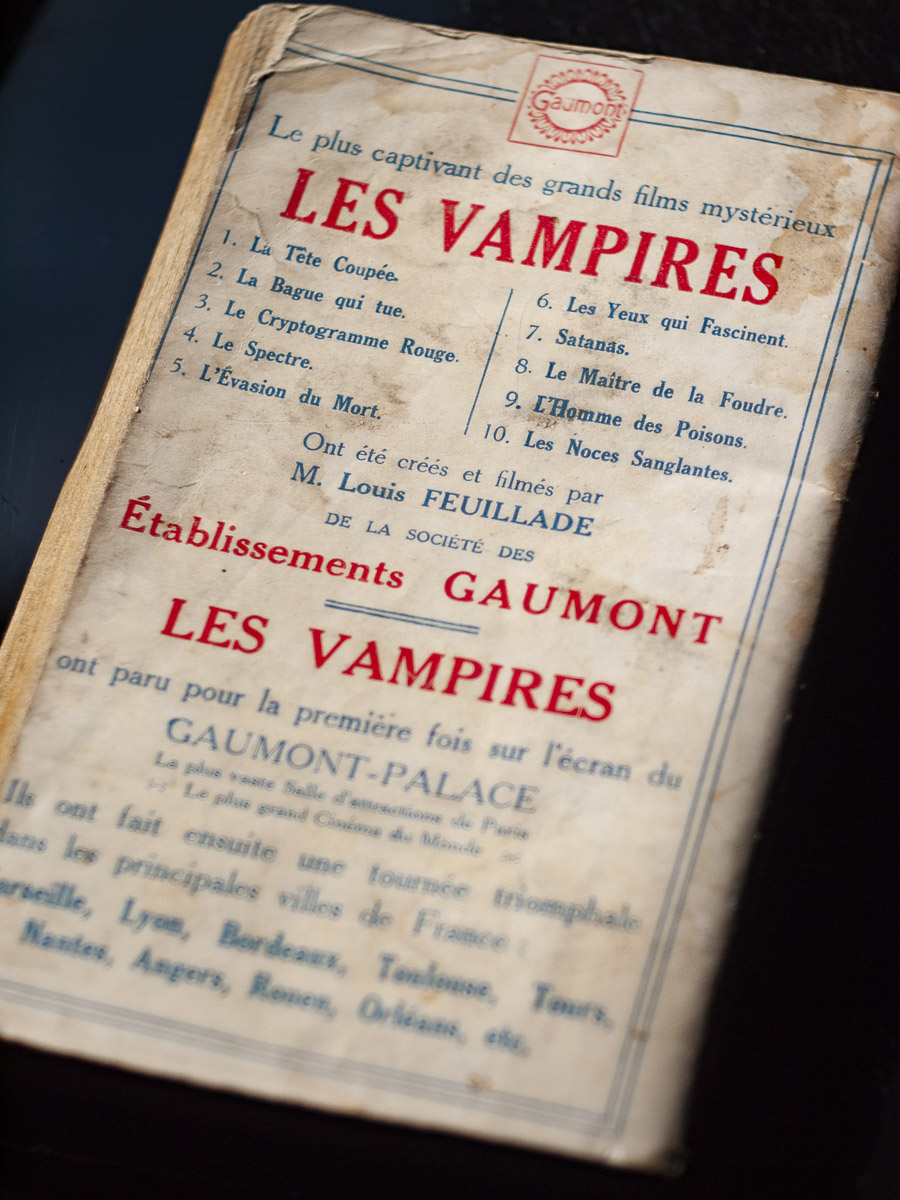 Gaumont
Le plus captivant des grands films mystérieux
LES VAMPIRES
1. La Tête Coupée.
2. La Bague qui tue.
3. Le Cryptogramme Rouge.
4. Le Spectre.
5. L'Évasion du Mort.
6. Les Yeux qui Fascinent.
7. Satanas.
8. Le Maître de la Foudre.
9. L'Homme des Poisons.
10. Les Noces Sanglantes.
Ont été créés et filmés par
M. Louis FEUILLADE
DE LA SOCIÉTÉ DES
Établissements GAUMONT
LES VAMPIRES
ont paru pour la première fois sur l'écran du
GAUMONT-PALACE
La plus vaste Salle d'attractions de Paris
Le plus grand Cinéma du Monde
Ils ont fait ensuite une tournée triomphale
dans les principales villes de France :
Marseille, Lyon, Bordeaux, Toulouse, Tours,
Nantes, Angers, Rouen, Orléans, etc.